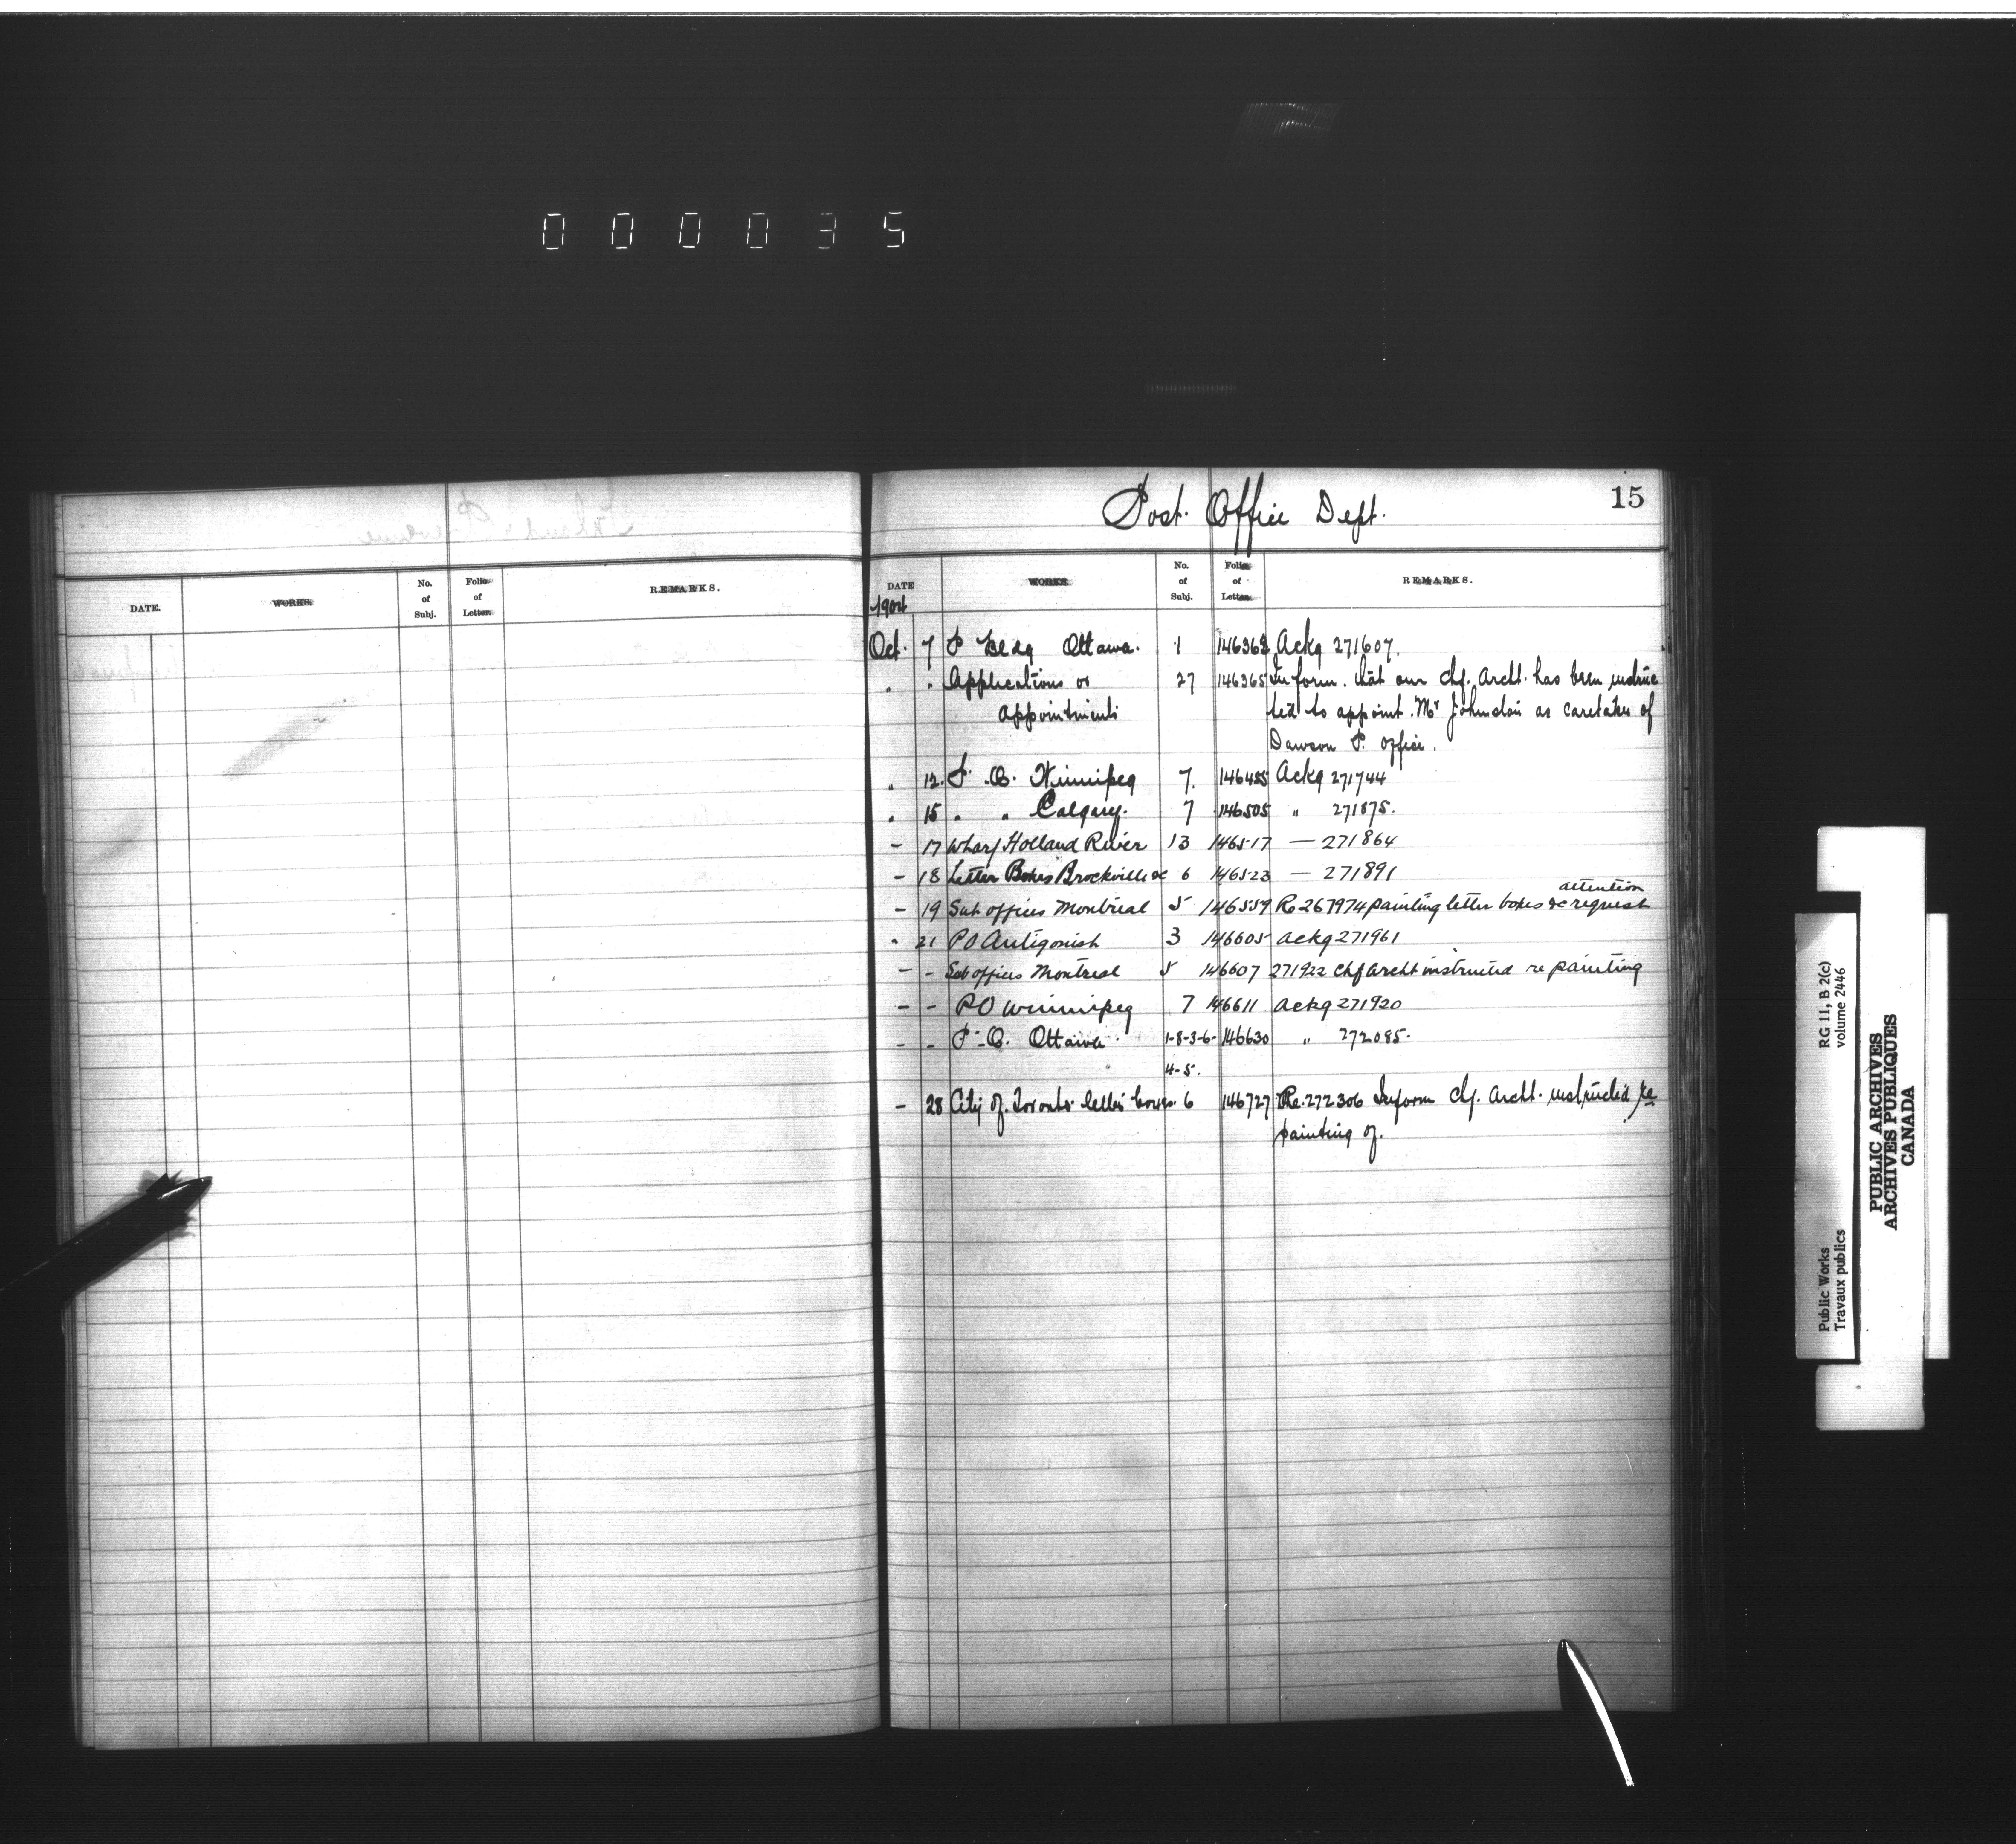 000035
15
Post Office Dept.
DATE. WORKS. No. of Subj. Folio of Letter. REMARKS.
DATE WORKS. No. of Subj. Folio of Letter. REMARKS.
1904
Oct. 7 P Bldg Ottawa. 1 146362 Ackg 271607.
" " Applications or 27 146365 Inform. that our Chf. Archt. has been instruc
appointments ted to appoint Mr Johnston as caretaker of
Dawson P. Office.
" 12. P. O. Winnipeg 7. 146455 Ackg 271744
" 15 " " Calgary. 7 146505 " 271875.
- 17 Wharf Holland River 13 146517 — 271864
- 18 Letter Boxes Brockville &c 6 146523 — 271891
attention
- 19 Sub offices Montreal 5 146559 Re 267974 painting letter boxes &c request
" 21 PO Antigonish 3 146605 ackg 271961
- - Sub offices Montreal 5 146607 271922 chf archt instructed re painting
- - PO Winnipeg 7 146611 ackg 271920
- - P.O. Ottawa 1-8-3-6- 146630 " 272085.
4-5.
- 28 City of Toronto letter boxes. 6 146727 Re. 272306 Inform Chf. Archt. instructed re
painting of.
Public Works RG 11, B 2(c)
Travaux publics volume 2446
PUBLIC ARCHIVES
ARCHIVES PUBLIQUES
CANADA